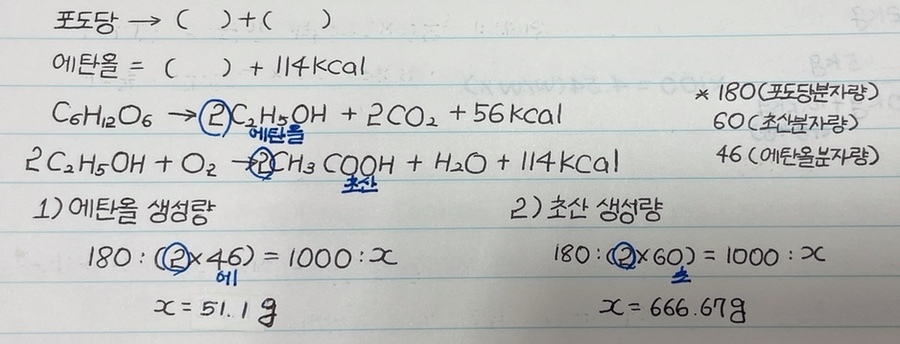 포도당 → (   ) + (   )
에탄올 = (   ) + 114kcal
C₆H₁₂O₆ → 2C₂H₅OH + 2CO₂ + 56kcal
에탄올
* 180(포도당분자량)
60(초산분자량)
46(에탄올분자량)
2C₂H₅OH + O₂ → 2CH₃COOH + H₂O + 114kcal
초산
1) 에탄올 생성량
180 : (2×46) = 1000 : x
에
x = 51.1 g
2) 초산 생성량
180 : (2×60) = 1000 : x
초
x = 666.67g